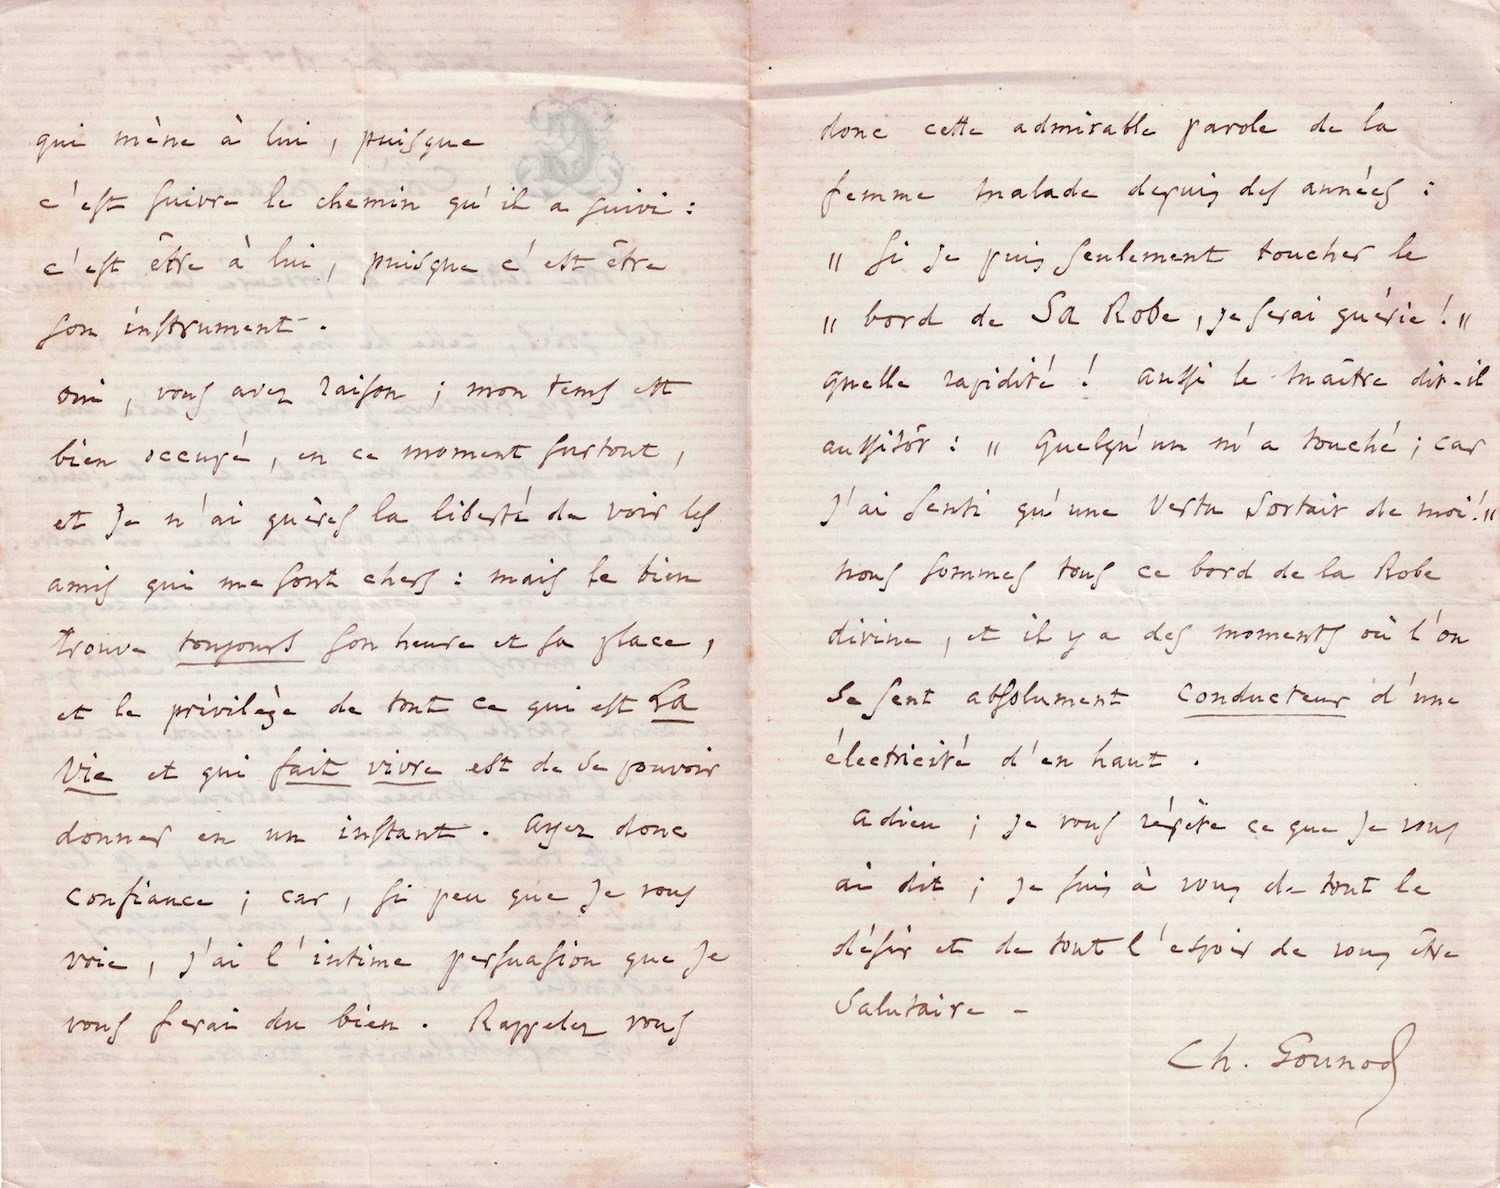 qui mène à lui, puisque
c'est suivre le chemin qu'il a suivi :
c'est être à lui, puisque c'est être
son instrument.
oui, vous avez raison ; mon tems est
bien occupé, en ce moment surtout,
et je n'ai guères la liberté de voir les
amis qui me sont chers : mais le bien
trouve toujours son heure et sa place,
et le privilège de tout ce qui est La
Vie et qui fait vivre est de se pouvoir
donner en un instant. Ayez donc
confiance ; car, si peu que je vous
voie, j'ai l'intime persuasion que je
vous ferai du bien. Rappelez vous
donc cette admirable parole de la
femme malade depuis des années :
" Si je puis seulement toucher le
" bord de Sa Robe, je serai guérie ! "
quelle rapidité ! aussi le maître dit-il
aussitôt : " Quelqu'un m'a touché ; car
j'ai senti qu'une Vertu Sortait de moi ! "
nous sommes tous ce bord de la Robe
divine, et il y a des moments où l'on
se sent absolument conducteur d'une
électricité d'en haut.
adieu ; je vous répète ce que je vous
ai dit ; je suis à vous de tout le
désir et de tout l'espoir de vous être
Salutaire -
Ch. Gounod